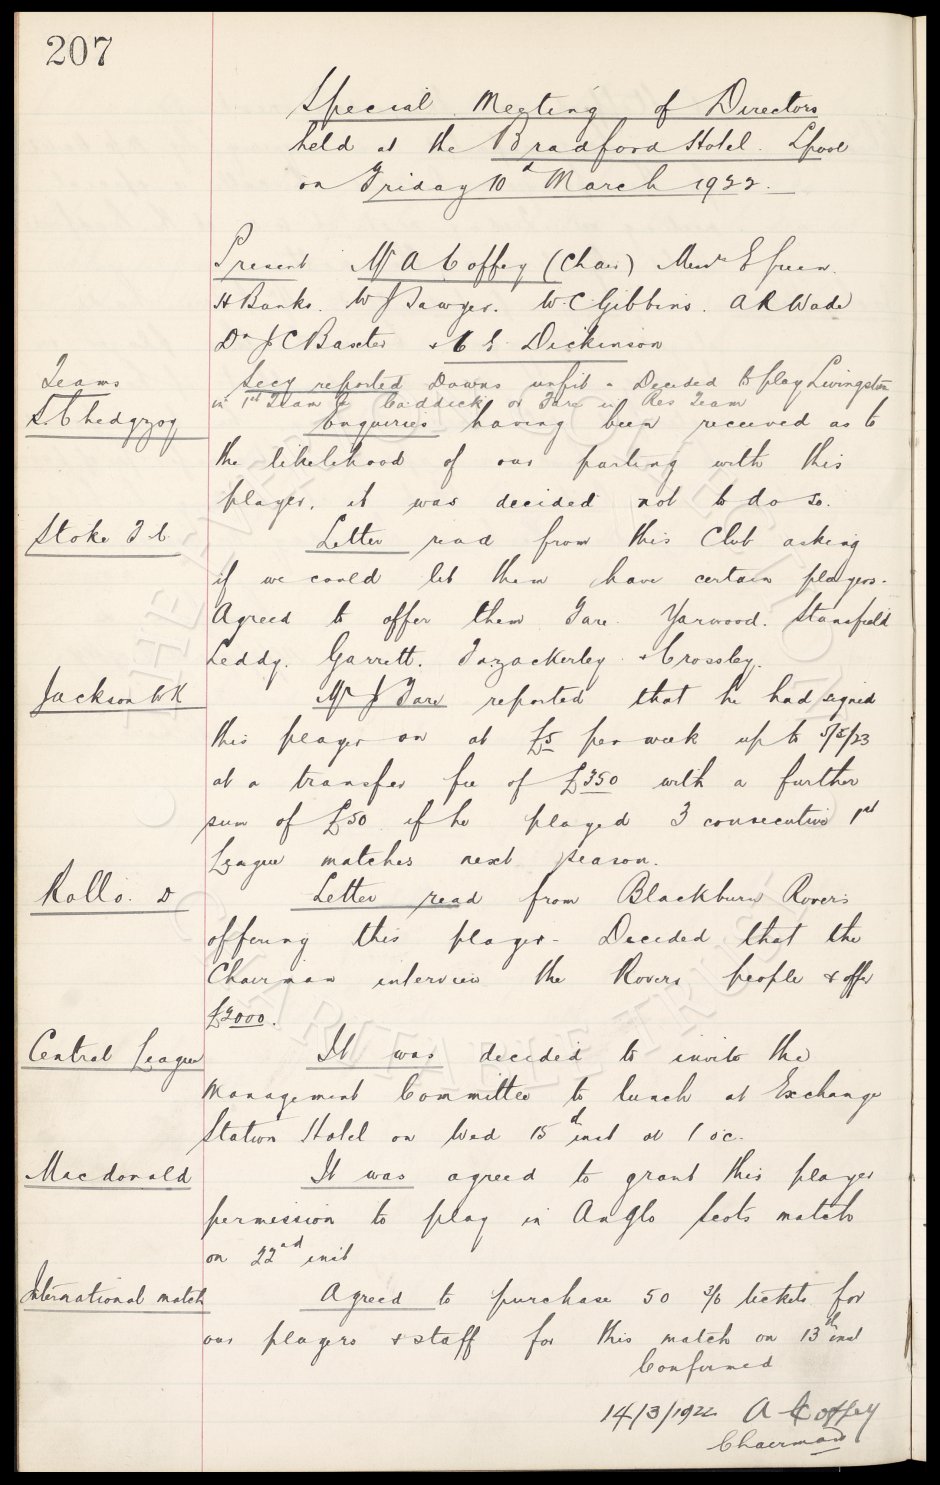 207
Special Meeting of Directors
held at the Bradford Hotel. Lpool
on Friday 10th March 1922.
Present Mr A Coffey (Chair) Messrs E Green.
H Banks. W J Sawyer. W C Gibbins. A R Wade
Dr J C Baxter & C E Dickinson
Teams
Secy reported Downs unfit - Decided to play Livingston
in 1st Team & Caddick or Fare in Res Team
S. Chedgzoy
Enquiries having been received as to
the likelihood of our parting with this
player, it was decided not to do so.
Stoke F C.
Letter read from this Club asking
if we could let them have certain players.
Agreed to offer them Fare. Yarwood. Stansfield
Leddy. Garrett. Fazackerley & Crossley.
Jackson W K
Mr J Fare reported that he had signed
this player on at £5 per week up to 5/5/23
at a transfer fee of £350 with a further
sum of £50 if he played 3 consecutive 1st
League matches next season.
Rollo. D
Letter read from Blackburn Rovers
offering this player - Decided that the
Chairman interview the Rovers people & offer
£2000.
Central League
It was decided to invite the
Management Committee to lunch at Exchange
Station Hotel on Wed 15th inst at 1 oc.
Macdonald
It was agreed to grant this player
permission to play in Anglo Scots match
on 22nd inst
International match
Agreed to purchase 50 3/6 tickets for
our players & staff for this match on 13th inst
Confirmed
14/3/1922 A Coffey
Chairman